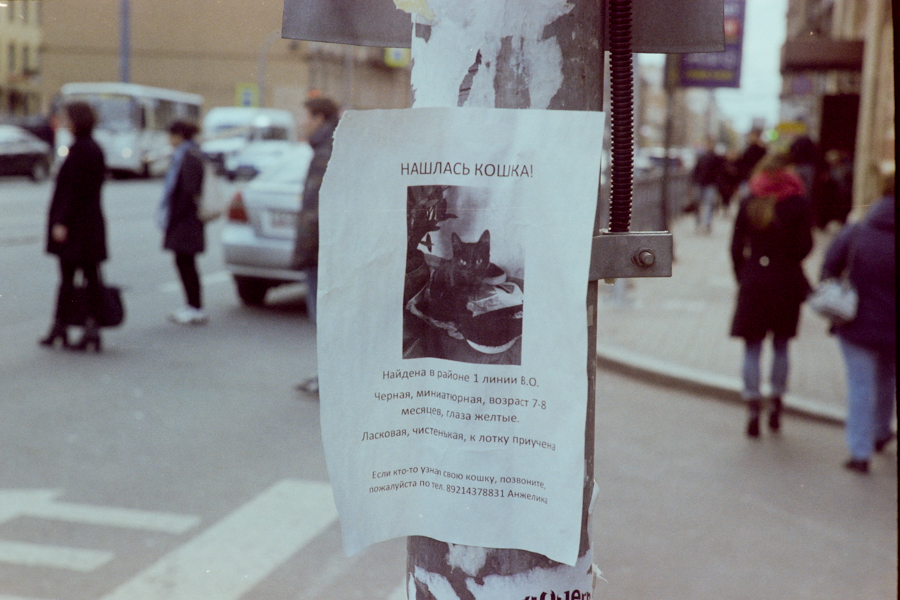 НАШЛАСЬ КОШКА!
Найдена в районе 1 линии В.О.
Черная, миниатюрная, возраст 7-8
месяцев, глаза желтые.
Ласковая, чистенькая, к лотку приучена
Если кто-то узнал свою кошку, позвоните,
пожалуйста по тел. 89214378831 Анжелика